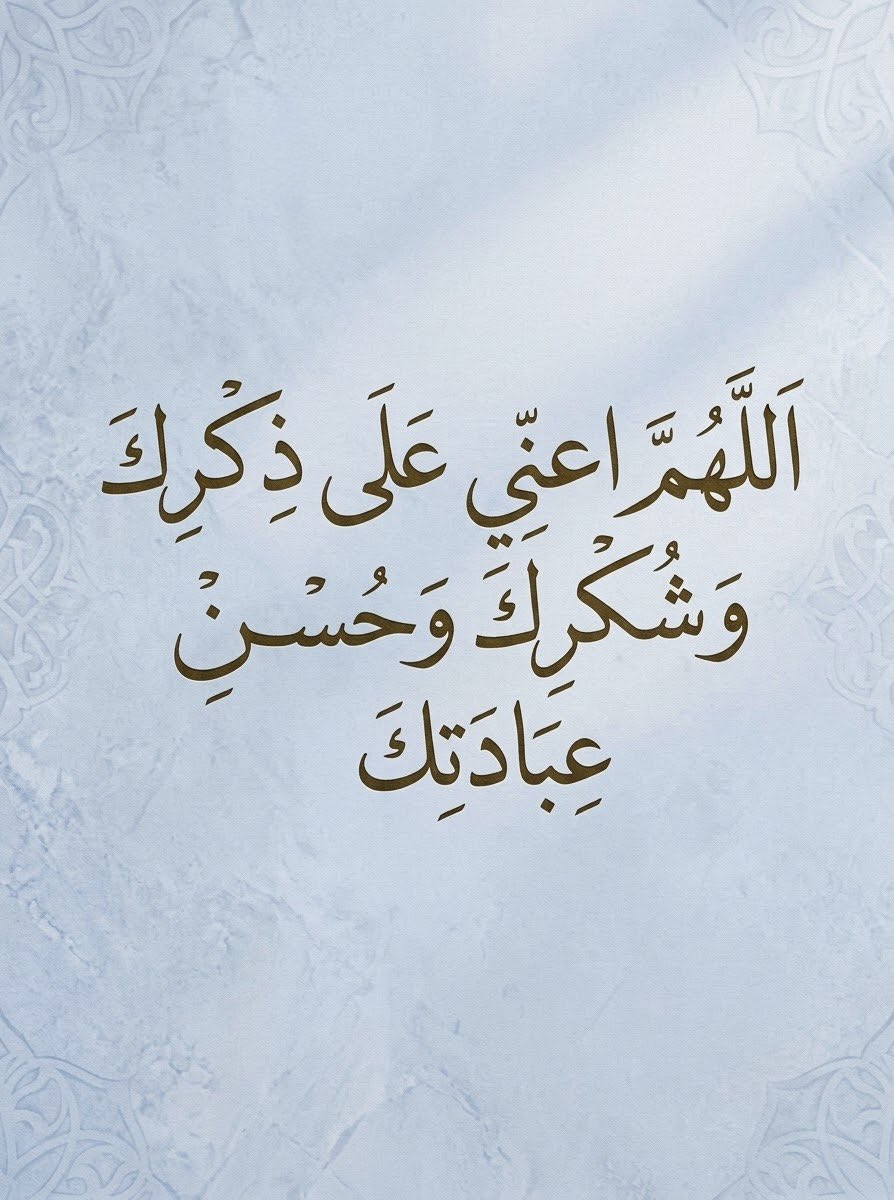 اَللَّهُمَّ اعنِّي عَلَى ذِكْرِكَ
وَشُكْرِكَ وَحُسْنِْ
عِبَادَتِكَ